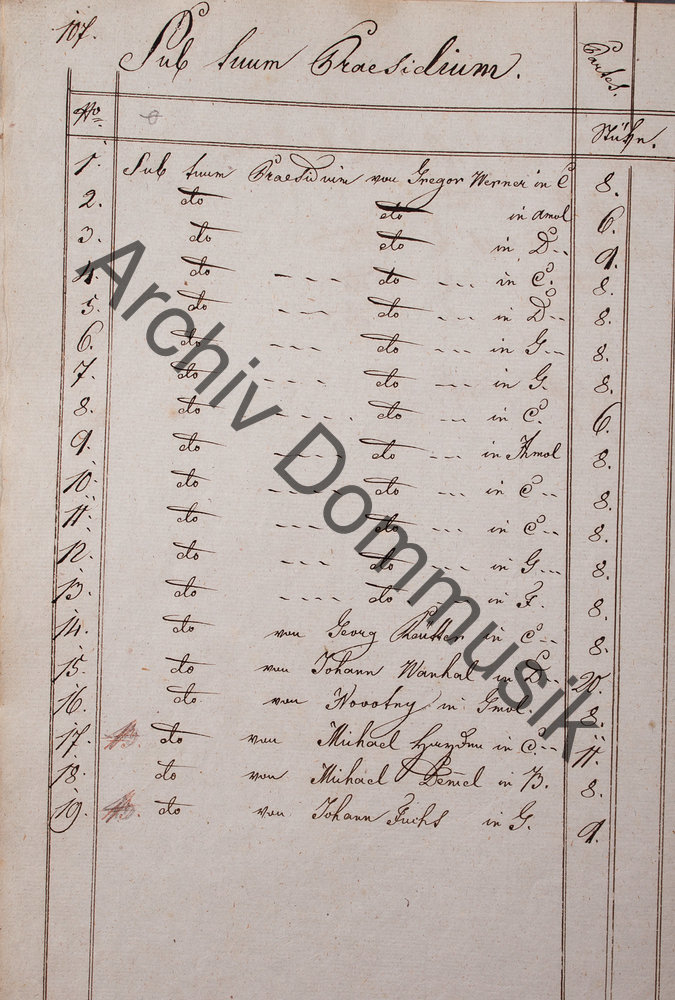 107.
Sub tuum Praesidium.
Partes.
No
Stükn.
1. Sub tuum Praesidium von Gregor Werner in C 8.
2. do do in Amol 6.
3. do do in D-- 9.
4. do ---- do --- in C. 8.
5. do --- do --- in D-- 8.
6. do --- do --- in G-- 8.
7. do ---- do --- in G. 8.
8. do ----- do --- in C. 6.
9. do ---- do --- in Hmol 8.
10. do ---- do --- in C-- 8.
11. do --- do --- in C-- 8.
12. do --- do --- in G-- 8.
13. do ---- do --- in F. 8.
14. do von Georg Reütter in C-- 8.
15. do von Johann Wanhal in D-- 20.
16. do von Novotny in Gmol. 8.
17. do von Michael Hayden in C-- 11.
18. do von Michael in B. 8.
19. do von Johann Fuchs in G. 9.
Archiv Dommusik